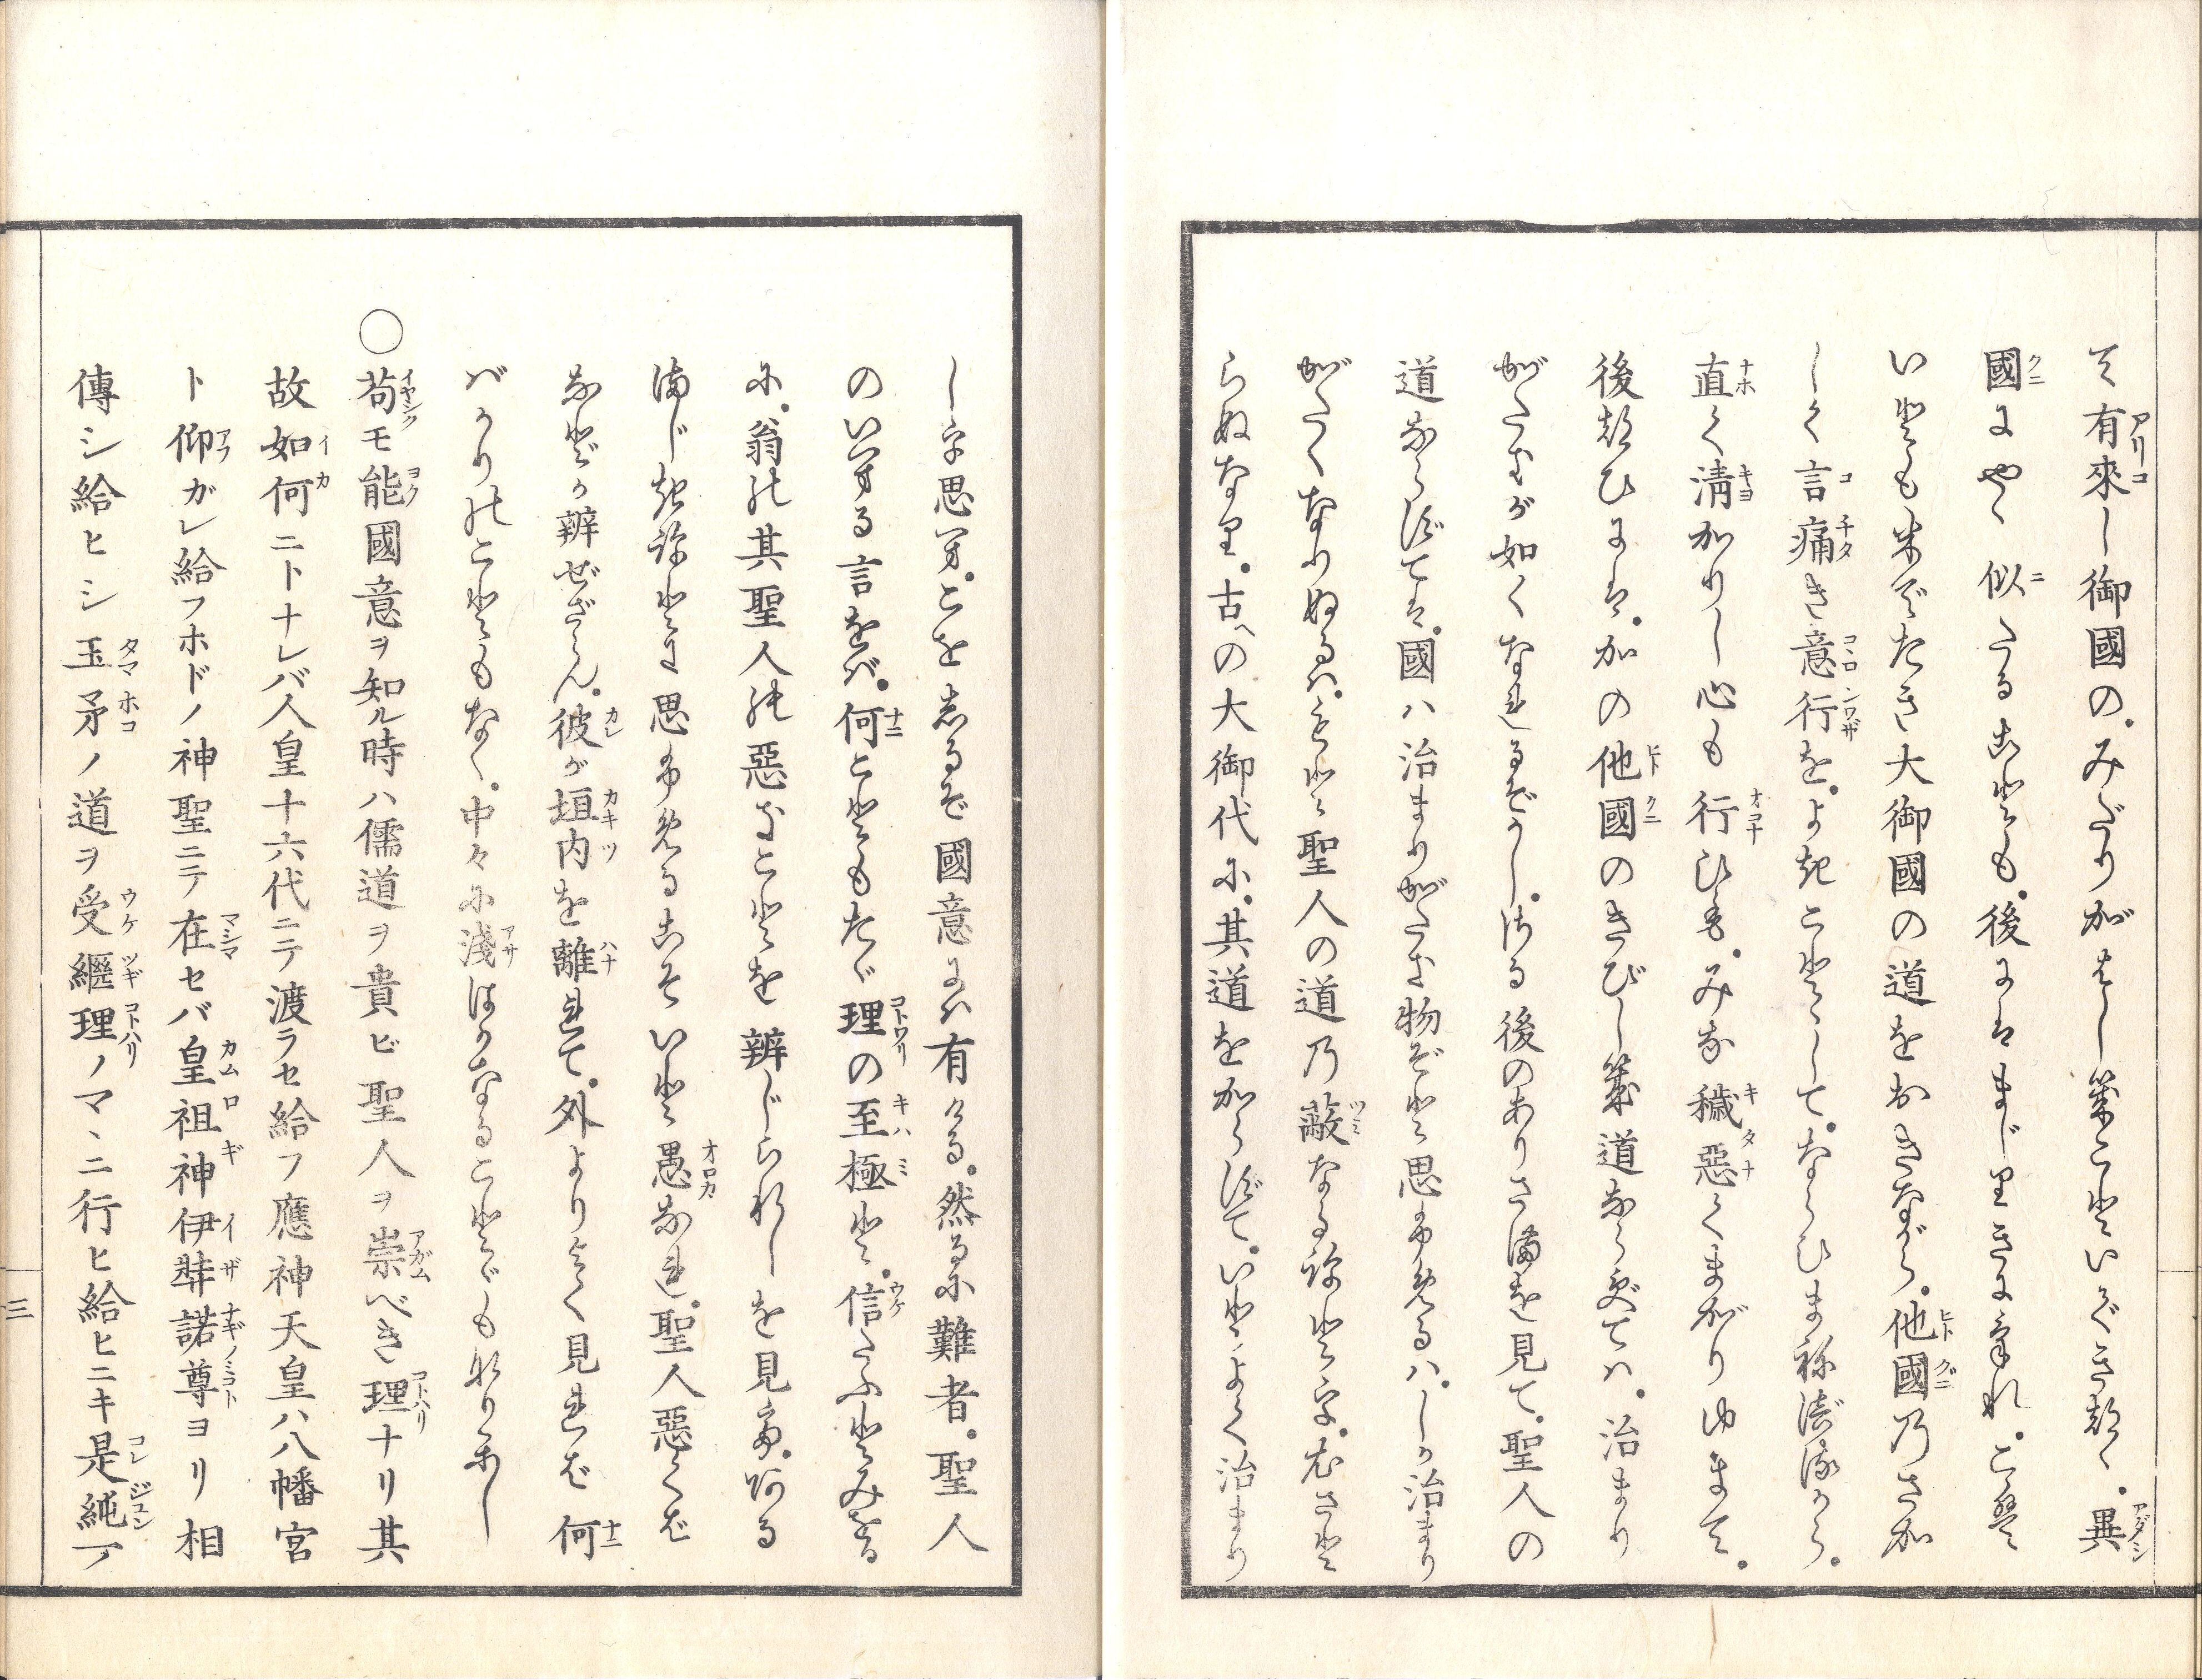 て有來し御國の。みだりがはしきこといできたり。異
國にやゝ似たることも。後にはまじりきにけれ。こゝに
いともめでたき大御國の道をおきながら。他國のさか
しく言痛き意行を。よきことゝして。ならひまねびたるから。
直く淸かりし心も行ひも。みな穢惡くまがりゆきて。
後つひには。かの他國のきびしき道ならずては。治まり
がたきが如くなれるぞかし。さる後のありさまを見て。聖人の
道ならずては。國ハ治まりがたき物ぞと思ふめるハ。しか治まり
がたくなりぬるハ。もと聖人の道の蔽なることを。えさと
らぬなり。古への大御代に。其道をからずて。いとよく治まり
し字思へ。こを志るぞ國意にハ有ける。然るに難者。聖人
のいへる言をば。何ともたゞ理の至極と。信たふとみをる
に。翁の其聖人の惡きことを辨じられしを見て。ある
まじきことに思ふめるこそいと愚なれ。聖人惡くば
などか辨ぜざらん。彼が垣内を離れて。外よりよく見れば何
ばかりのこともなく。中々に淺はかなることゞもなりかし
〇苟モ能國意ヲ知ル時ハ儒道ヲ貴ビ聖人ヲ崇べき理ナリ其
故如何ニトナレバ人皇十六代ニテ渡ラセ給フ應神天皇ハ八幡宮
ト仰ガレ給フホドノ神聖ニテ在セバ皇祖神伊弉諾尊ヨリ相
傳シ給ヒシ玉矛ノ道ヲ受繼理ノマヽニ行ヒ給ヒニキ是純一
三